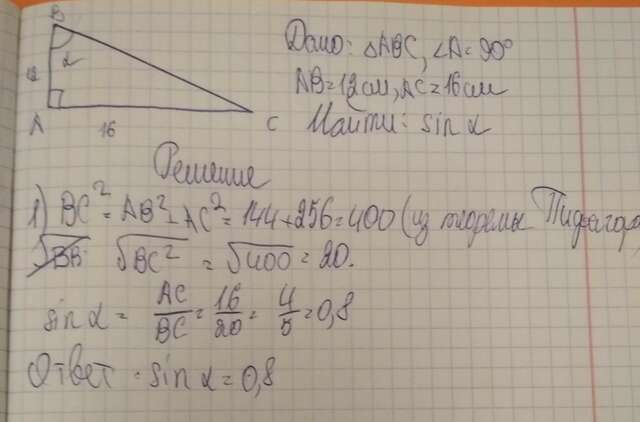 B
Дано: △ABC, ∠A=90°
12 α
AB=12см, AC=16см
A 16 C Найти: sin α
Решение
1) BC² = AB² + AC² = 144 + 256 = 400 (из теоремы Пифагора
√BC² = √400 = 20.
sin α = AC/BC = 16/20 = 4/5 = 0,8
Ответ: sin α = 0,8